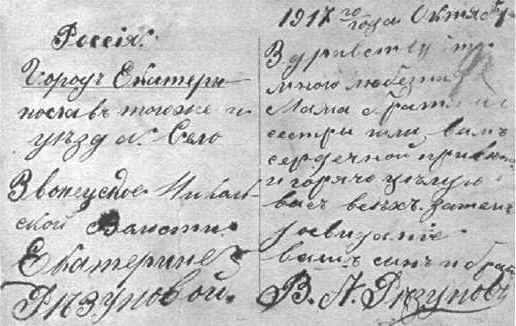 Россія.
Городъ Екатери-
нославъ того же и
уѣзда. Село
Звонецкое Николь-
ской Волости.
Екатерине
Рязуновой.
1917 го года Октяб
Здравствуйте
много любезная
Мама братия и
сестры шлю вамъ
сердечной привет
и горячо целую
васъ всехъ. затемъ
досвидание
вашъ сынъ и братъ
В. А. Рязуновъ